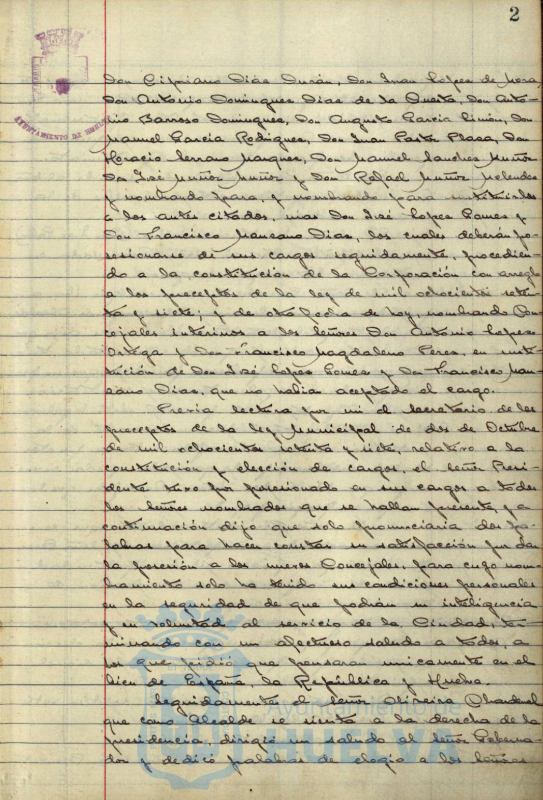 2
AYUNTAMIENTO DE HUELVA
Don Cipriano Díaz Durán, Don Juan López de Mora,
Don Antonio Domínguez Díaz de la Questa, Don Anto-
nio Barroso Domínguez, Don Augusto García Limón, Don
Manuel García Rodríguez, Don Juan Pastor Plaza, Don
Horacio Serrano Marquez, Don Manuel Sanchez Muñoz
Don José Muñoz Muñoz y Don Rafael Muñoz Melendez
y nombrando para, y nombrando para sustituirlos
a los antes citados, mas Don José López Gomez y
Don Francisco Manzano Díaz, los cuales deberán po-
sesionarse de sus cargos seguidamente, procedien-
do a la constitución de la Corporación con arreglo
a los preceptos de la ley de mil ochocientos seten-
ta y siete; y de otra fecha de hoy, nombrando Con-
cejales interinos a los señores Don Antonio Lopez
Ortega y Don Francisco Magdaleno Perez, en susti-
tución de Don José López Gomez y Don Francisco Man-
zano Díaz, que no habian aceptado el cargo.
Previa lectura por mi el Secretario de los
preceptos de la ley Municipal de dos de Octubre
de mil ochocientos setenta y siete, relativo a la
constitución y elección de cargos, el señor Presi-
dente tuvo por posesionado en sus cargos a todos
los señores nombrados que se hallan presente, y a
continuación dijo que solo pronunciaria dos pa-
labras para hacer constar su satisfacción por dar
la posesión a los nuevos Concejales, para cuyo nom-
bramiento solo ha tenido sus condiciones personales
en la seguridad de que podrán su inteligencia
y su voluntad al servicio de la Ciudad, ter-
minando con un afectuoso saludo a todos, a
los que pidió que pensaran unicamente en el
bien de España, la República y Huelva.
Seguidamente el señor Oliveira Chardenal
que como Alcalde se sienta a la derecha de la
presidencia, dirigió un saludo al señor Goberna-
dor y dedicó palabras de elogio a los señores
Ayuntamiento de
HUELVA